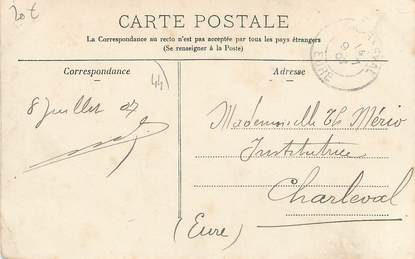 20€
CARTE POSTALE
La Correspondance au recto n'est pas acceptée par tous les pays étrangers
(Se renseigner à la Poste)
Correspondance
Adresse
44
8 Juillet 07
Mademoiselle Th Mério
Institutrice
Charleval
(Eure)
EURE